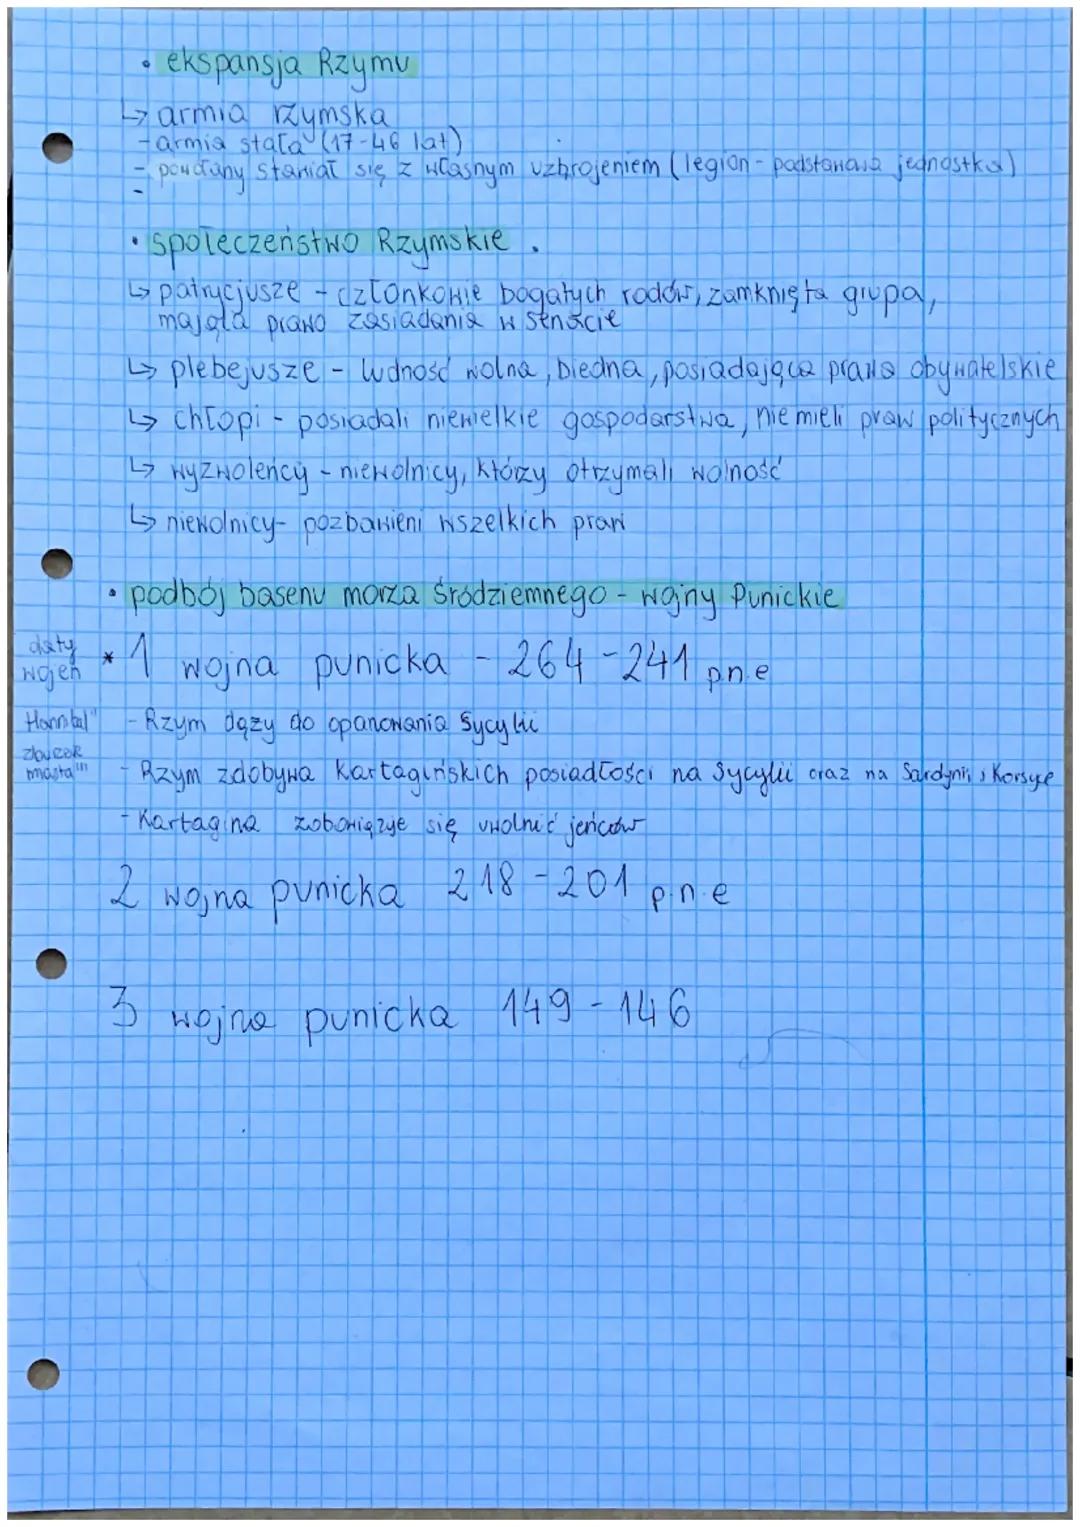 • ekspansja Rzymu
↳ armia rzymska
- armia stała (17-46 lat)
- powołany stawiał się z własnym uzbrojeniem (legion - podstawowa jednostka)
-
• społeczeństwo Rzymskie .
↳ patrycjusze - członkowie bogatych rodów, zamknięta grupa,
mająca prawo zasiadania w senacie
↳ plebejusze - ludność wolna, biedna, posiadająca prawa obywatelskie
↳ chłopi - posiadali niewielkie gospodarstwa, nie mieli praw politycznych
↳ wyzwoleńcy - niewolnicy, którzy otrzymali wolność
↳ niewolnicy- pozbawieni wszelkich praw
• podbój basenu morza Śródziemnego - wojny Punickie
daty
wojen
* 1 wojna punicka - 264-241 p.n.e
Hannibal"
- Rzym dąży do opanowania Sycylii
miasta"
- Rzym zdobywa Kartagińskich posiadłości na Sycylii oraz na Sardynii i Korsyce
- Kartagina zobowiązuje się uwolnić jeńców
2 wojna punicka 218-201 p.n.e
3 wojna punicka 149-146